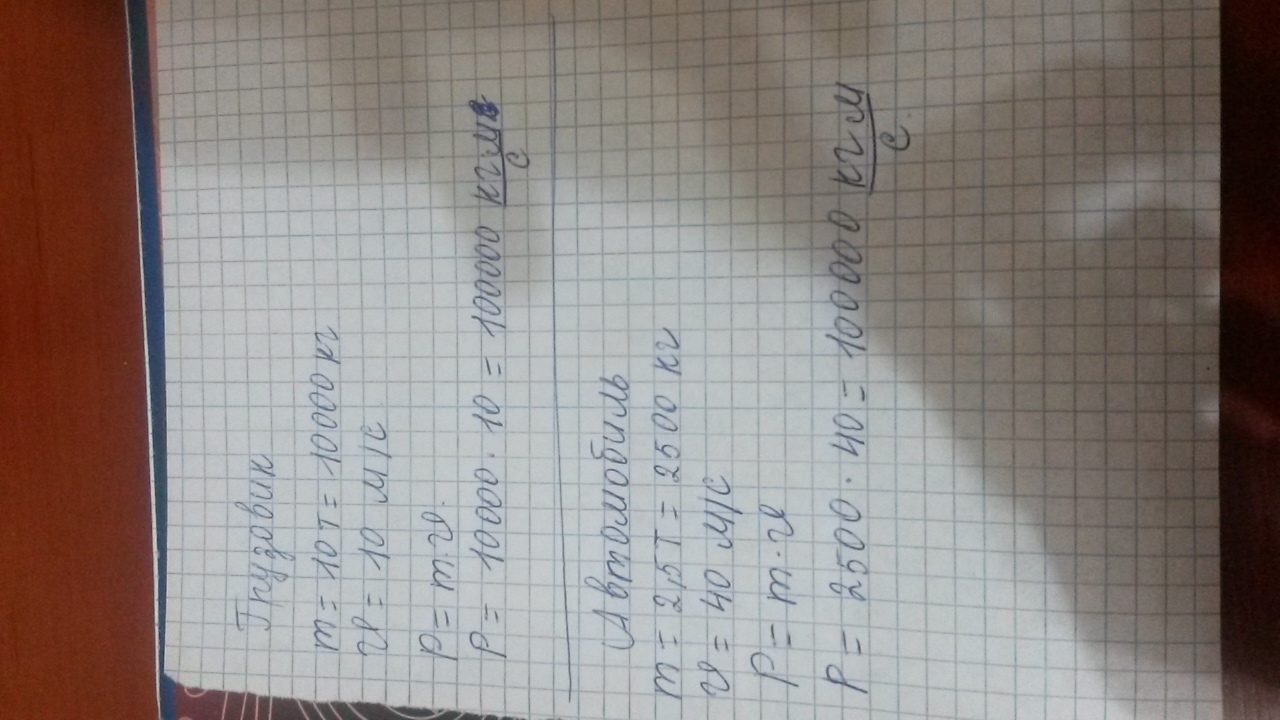 Грузовик
m = 10 т = 10000 кг
υ = 10 м/с
p = m·υ.
p = 10000 · 10 = 100000 кг м/с
Автомобиль
m = 2,5 т = 2500 кг
υ = 40 м/с
p = m·υ
p = 2500 · 40 = 100000 кг м/с